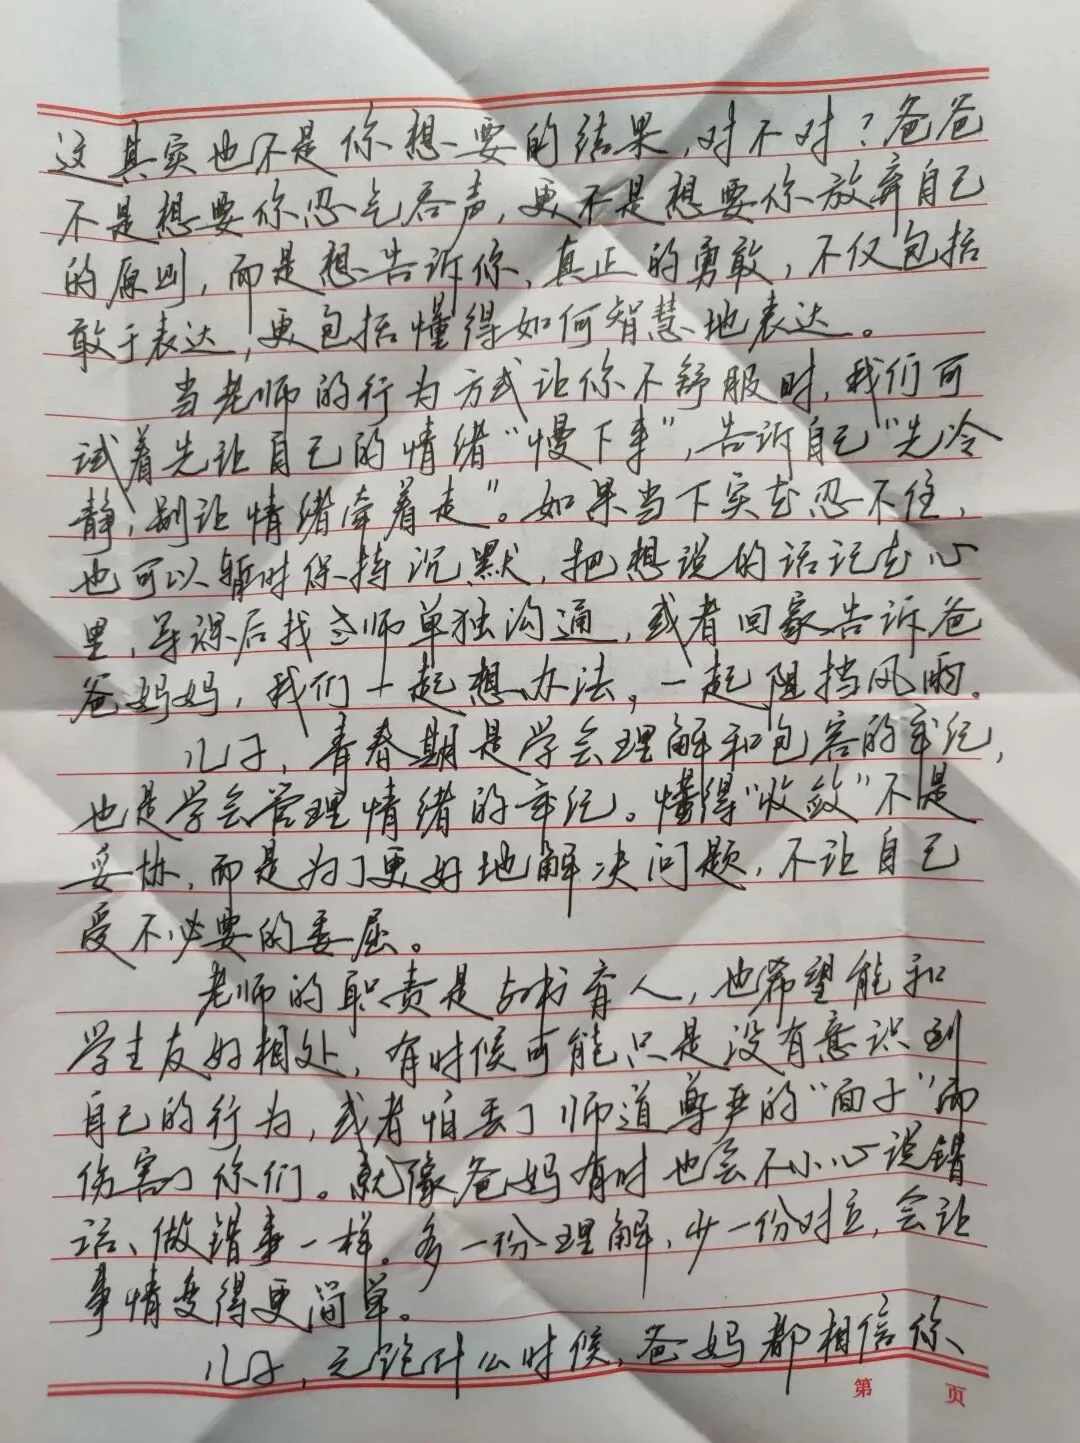 这其实也不是你想要的结果,对不对?爸爸
不是想要你忍气吞声,更不是想要你放弃自己
的原则,而是想告诉你,真正的勇敢,不仅包括
敢于表达,更包括懂得如何智慧地表达。
当老师的行为方式让你不舒服时,我们可
试着先让自己的情绪“慢下来”,告诉自己“先冷
静,别让情绪牵着走”。如果当下实在忍不住,
也可以暂时保持沉默,把想说的话记在心
里,等课后找老师单独沟通,或者回家告诉爸
爸妈妈,我们一起想办法,一起阻挡风雨。
儿子,青春期是学会理解和包容的年纪,
也是学会管理情绪的年纪。懂得“收敛”不是
妥协,而是为了更好地解决问题,不让自己
受不必要的委屈。
老师的职责是教书育人,也希望能和
学生友好相处,有时候可能只是没有意识到
自己的行为,或者怕丢了师道尊严的“面子”而
伤害了你们。就像爸妈有时也会不小心说错
话、做错事一样。多一份理解,少一份对立,会让
事情变得更简单。
儿子,无论什么时候,爸妈都相信你
第 页